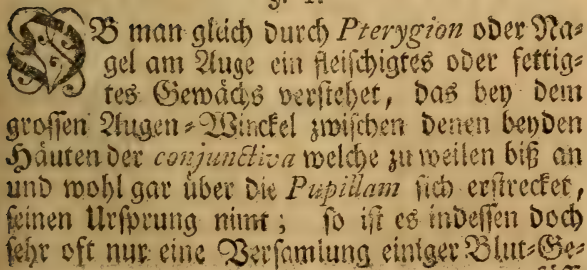 §. 1.
OB man gleich durch Pterygion oder Na⸗
gel am Auge ein fleischigtes oder fettig⸗
tes Gewächs verstehet, das bey dem
grossen Augen⸗Winckel zwischen denen beyden
Häuten der conjunctiva welche zu weilen biß an
und wohl gar über die Pupillam sich erstrecket,
seinen Ursprung nimt; so ist es indessen doch
sehr oft nur eine Versamlung einiger Blut⸗Ge⸗